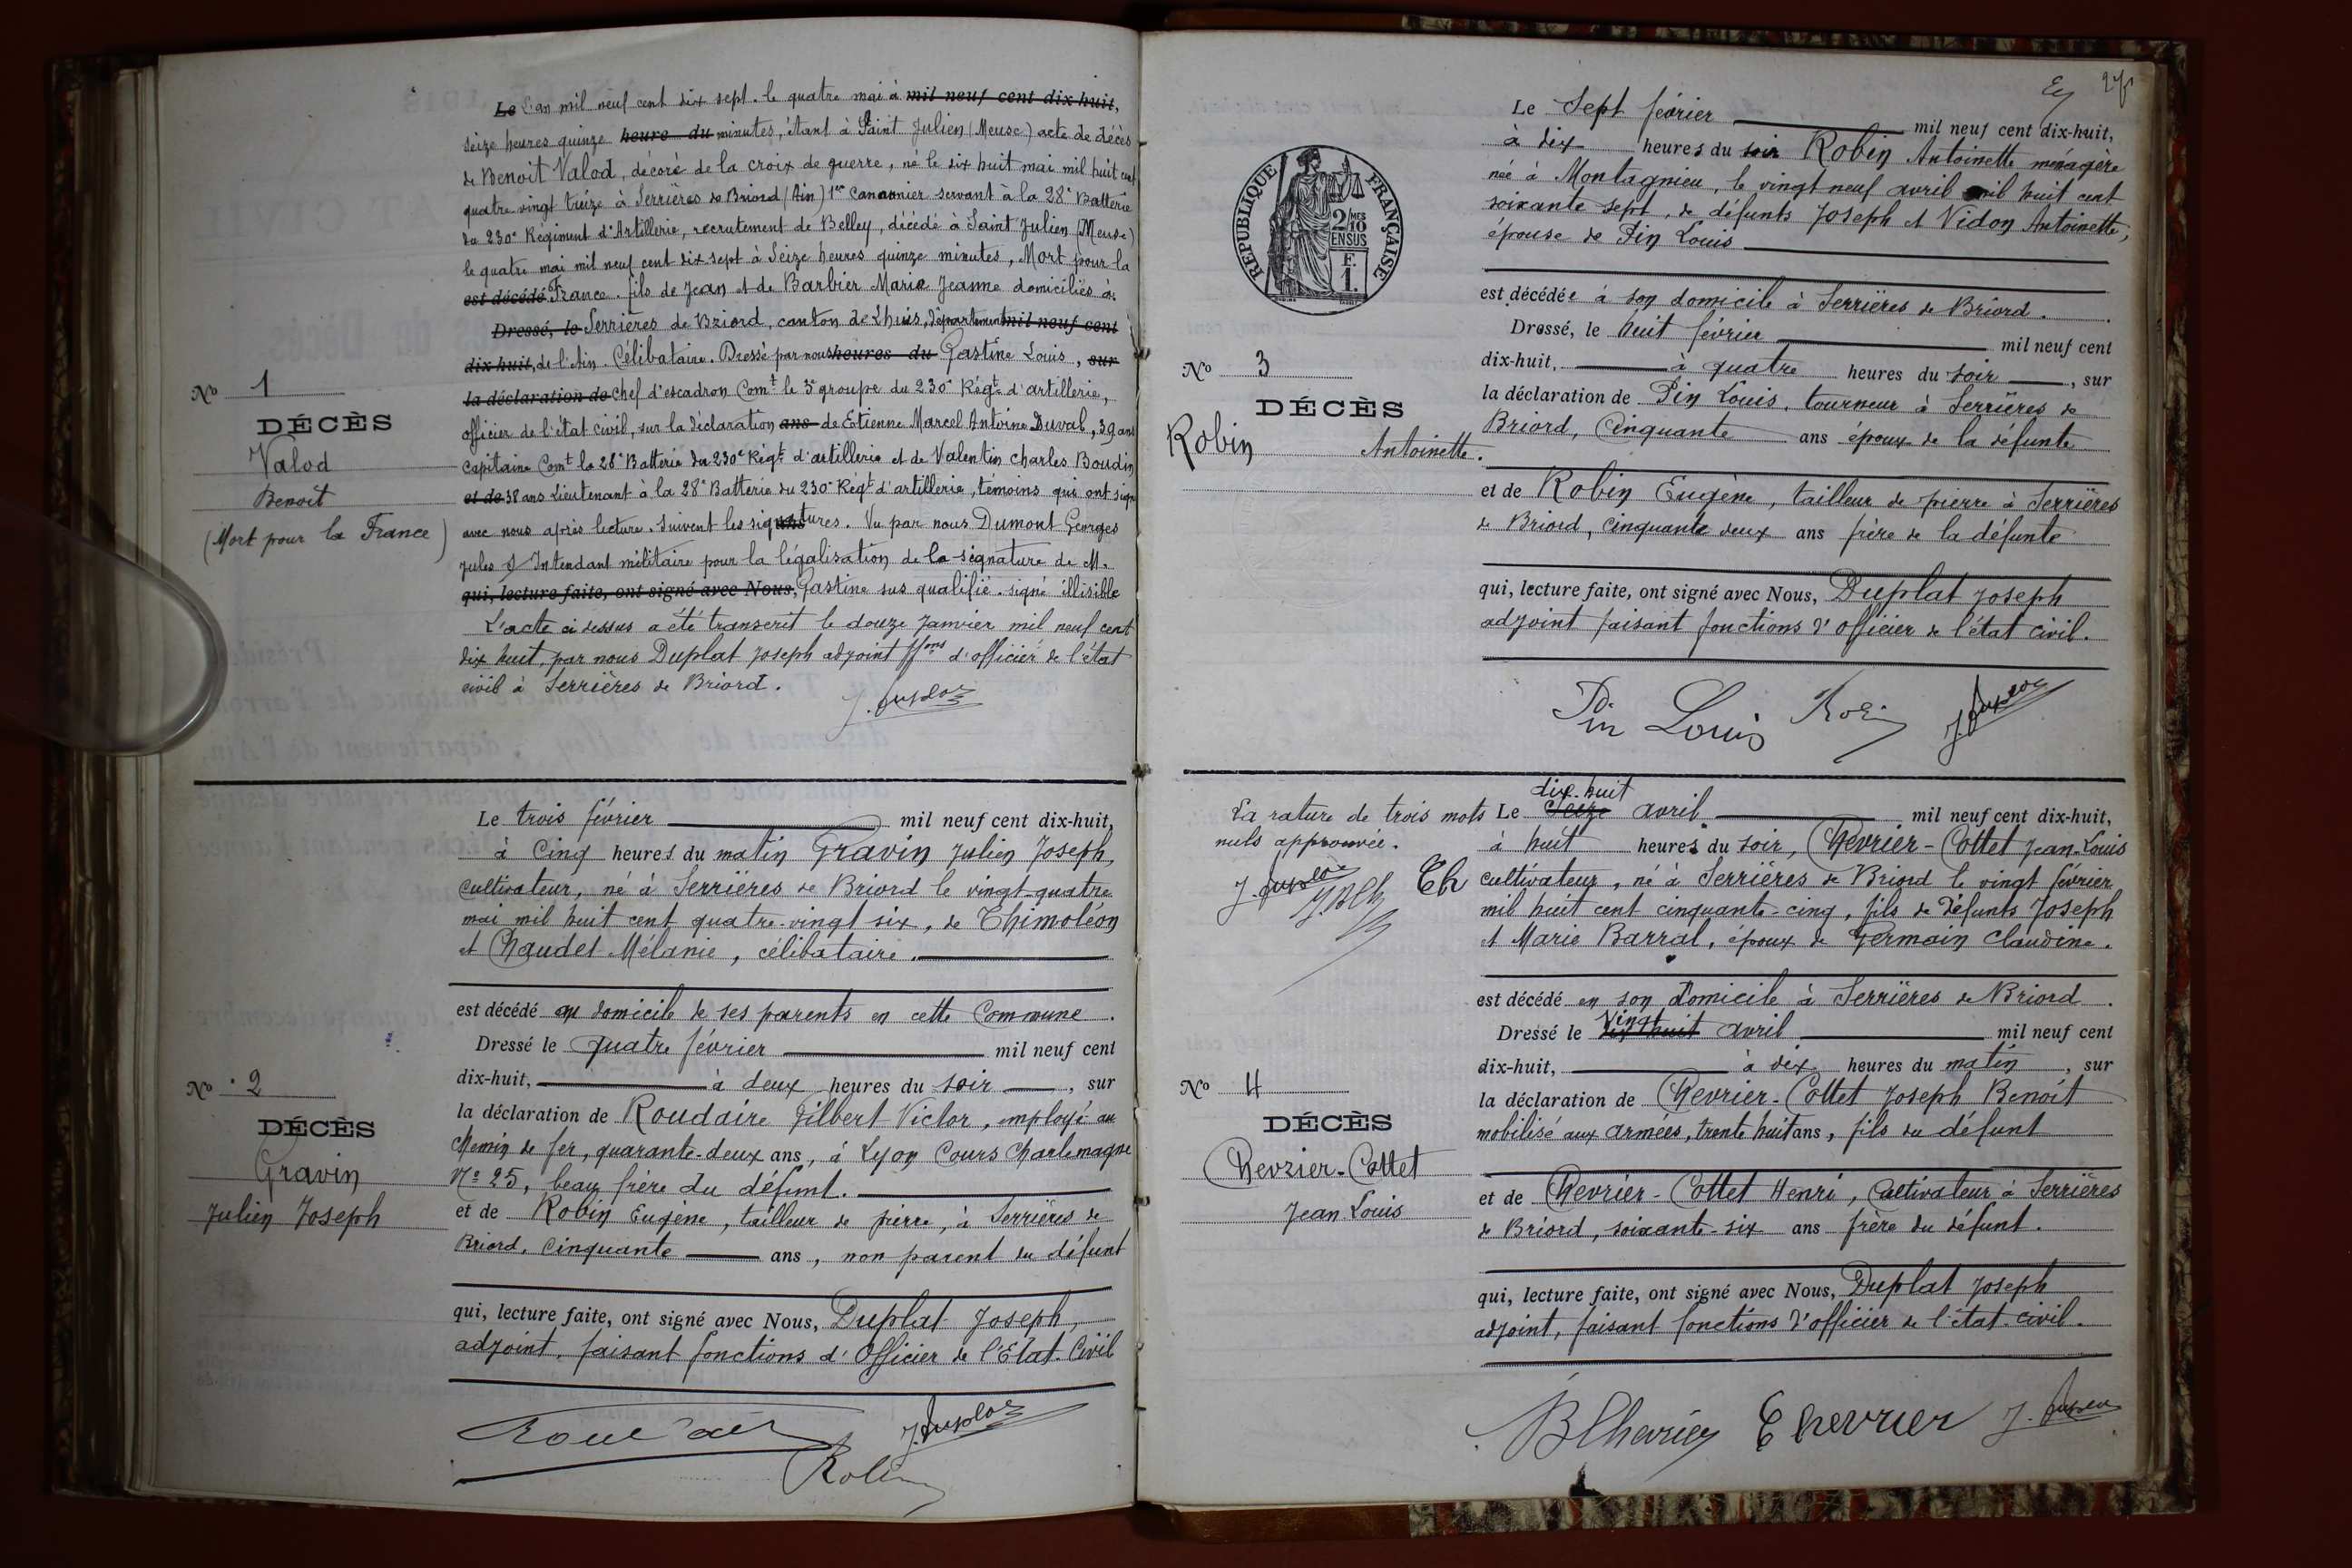 Le L'an mil neuf cent dix sept. le quatre mai à mil neuf cent dix-huit,
seize heures quinze heure du minutes, étant à Saint Julien (Meuse) acte de décès
de Benoit Valod, décoré de la croix de guerre, né le dix huit mai mil huit cent
quatre-vingt treize à Serrières de Briord (Ain) 1er Canonnier servant à la 28e Batterie
du 230e Régiment d'Artillerie, recrutement de Belley, décédé à Saint Julien (Meuse)
le quatre mai mil neuf cent dix-sept à Seize heures quinze minutes, Mort pour la
est décédé France. fils de Jean et de Barbier Marie Jeanne domiciliés à
Dressé, le Serrières de Briord, canton de Lhuis, département mil neuf cent
dix-huit, de l'Ain. Célibataire. Dressé par nous heures du Gastine Louis, sur
la déclaration de chef d'escadron Comt le 3e groupe du 230e Régt d'artillerie,
officier de l'état civil, sur la déclaration ans de Etienne Marcel Antoine Duval, 39 ans
Capitaine Comt la 28e Batterie du 230e Régt d'artillerie et de Valentin Charles Boudin
et de 38 ans Lieutenant à la 28e Batterie du 230e Régt d'artillerie, témoins qui ont signé
avec nous après lecture. Suivent les signatures. Vu par nous Dumont Georges
Jules S/ Intendant militaire pour la légalisation de la signature de M.
qui, lecture faite, ont signé avec Nous, Gastine sus qualifié. signé illisible
L'acte ci dessus a été transcrit le douze Janvier mil neuf cent
dix huit, par nous Duplat Joseph adjoint ffons d'officier de l'état
civil à Serrières de Briord.
J. Duplat
No 1
DÉCÈS
Valod
Benoit
(Mort pour la France)
Le trois février mil neuf cent dix-huit,
à Cinq heures du matin Gravin Julien Joseph,
cultivateur, né à Serrières de Briord le vingt-quatre
mai mil huit cent quatre-vingt six, de Thimoléon
et Chaudet Mélanie, célibataire.
est décédé au domicile de ses parents en cette Commune.
Dressé le quatre février mil neuf cent
dix-huit, à deux heures du soir, sur
la déclaration de Roudaire Gilbert Victor, employé au
Chemin de fer, quarante-deux ans, à Lyon Cours Charlemagne
No 25, beau frère du défunt.
et de Robin Eugène, tailleur de pierre, à Serrières de
Briord, Cinquante ans, non parent du défunt
qui, lecture faite, ont signé avec Nous, Duplat Joseph,
adjoint, faisant fonctions d'Officier de l'Etat-Civil
Roudaire
J. Duplat
Robin
No 2
DÉCÈS
Gravin
Julien Joseph
Le Sept février mil neuf cent dix-huit,
à dix heures du soir Robin Antoinette ménagère
née à Montagnieu, le vingt neuf avril mil huit cent
soixante sept, de défunts Joseph et Vidon Antoinette,
épouse de Pin Louis
est décédée à son domicile à Serrières de Briord.
Dressé, le huit février mil neuf cent
dix-huit, à quatre heures du soir, sur
la déclaration de Pin Louis, tourneur à Serrières de
Briord, Cinquante ans époux de la défunte
et de Robin Eugène, tailleur de pierre à Serrières
de Briord, cinquante deux ans frère de la défunte
qui, lecture faite, ont signé avec Nous, Duplat Joseph
adjoint faisant fonctions d'officier de l'état civil.
Pin Louis Robin J. Duplat
RÉPUBLIQUE FRANÇAISE
2/10 MES
EN SUS
F.
1.
No 3
DÉCÈS
Robin Antoinette.
dix-huit
Le Seize avril mil neuf cent dix-huit,
à huit heures du soir, Chevrier-Cottet Jean-Louis
cultivateur, né à Serrières de Briord le vingt février
mil huit cent cinquante-cinq, fils de défunts Joseph
et Marie Barral, époux de Germain Claudine.
est décédé en son domicile à Serrières de Briord.
Vingt
Dressé le dix huit avril mil neuf cent
dix-huit, à dix heures du matin, sur
la déclaration de Chevrier-Cottet Joseph Benoît
mobilisé aux armées, trente huit ans, fils du défunt
et de Chevrier-Cottet Henri, Cultivateur à Serrières
de Briord, soixante-six ans frère du défunt.
qui, lecture faite, ont signé avec Nous, Duplat Joseph
adjoint, faisant fonctions d'officier de l'état-civil.
B Chevrier Chevrier J. Duplat
La rature de trois mots
nuls approuvée.
J. Duplat
Ch
No 4
DÉCÈS
Chevrier-Cottet
Jean Louis